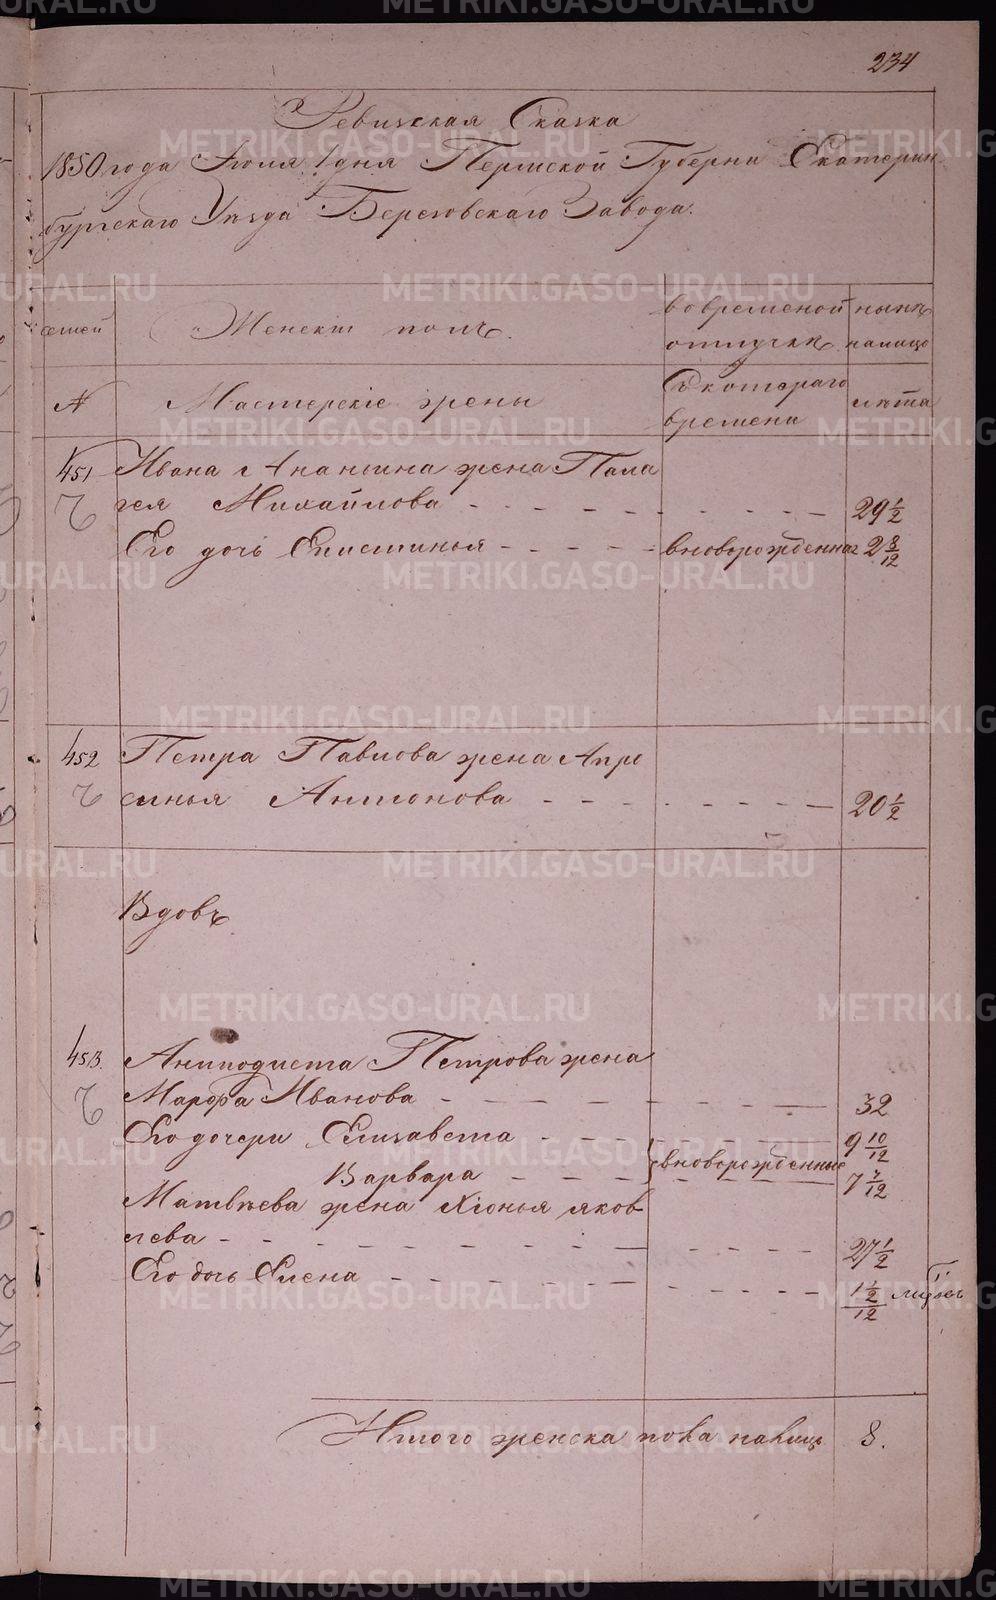 234
Ревизская Сказка
1850 года Июля 1 дня Пермской Губерни Екатерин
бургскаго Уезда Березовскаго Завода.
семей Женскiй полъ. вовременой нынѣ
отлучке налицо
№ Мастерскiе жены Съ котораго лѣта
времени
451 Ивана Ананьина жена Пала
гея Михайлова 29 1/2
Его дочь Епистинья вноворожденна 2 8/12
452 Петра Павлова жена Апро
синья Антонова 20 1/2
Вдовъ
453. Анподиста Петрова жена
Марфа Иванова 32
Его дочери Елизавета 9 10/12
вноворожденные
Варвара 7 7/12
Матвѣева жена Хiонья яков
лева 27 1/2
Его дочь Елена 1 1/2/12
Итого женска пола налицъ 8.
METRIKI.GASO-URAL.RU